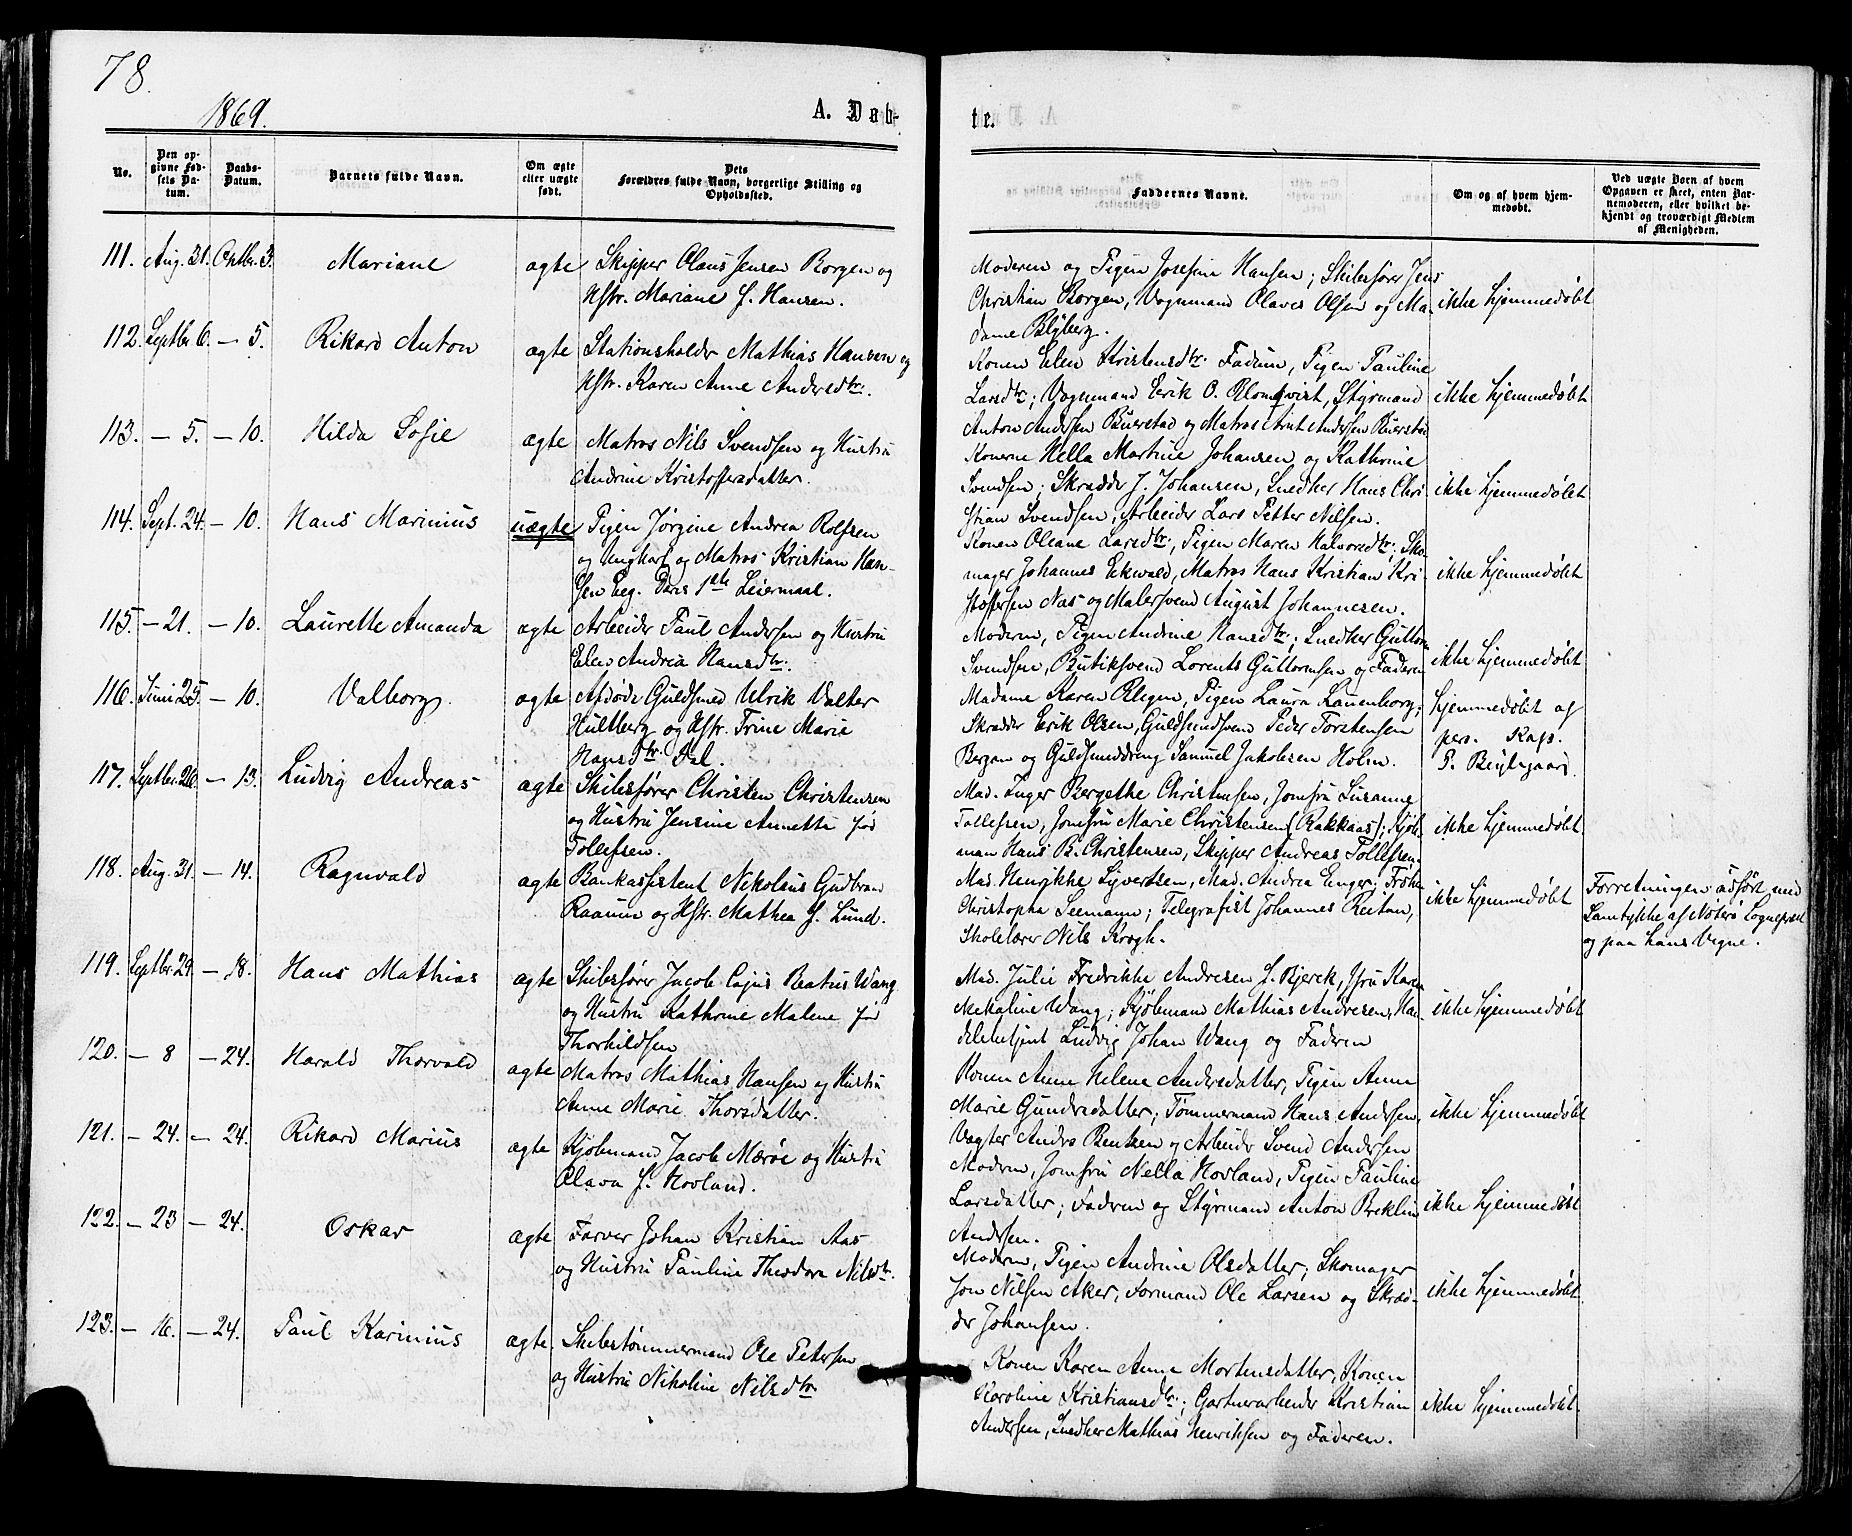 78.
1869.
A. Døb-
te.
No.
Den op-
givne Fød-
sels Da-
tum.
Daabs-
Datum.
Barnets fulde Navn.
Om ægte
eller uægte
født.
Dets
Forældres fulde Navn, borgerlige Stilling og
Opholdssted.
Faddernes Navne.
Om og af hvem hjem-
medøbt.
Ved uægte Born af hvem
Opgaven er skeet, enten Bar-
nemoderen, eller hvilket be-
kjendt og troværdigt Medlem
af Menigheden.
111. Aug. 31. Oktbr. 3. Mariane ægte Skipper Olaus Jensen Borgen og
Hstr. Mariane f. Hansen.
Moderen og Pigen Josefine Hansen; Skibsfører Jens
Christian Borgen, Vognmand Olaves Olsen og Ma-
dame Blyberg.
ikke hjemmedøbt
112. Septbr. 6. — 5. Rikard Anton ægte Stationsholder Mathias Hansen og
Hstr. Karen Anne Andersdtr.
Konen Elen Kristensdtr. Fadum, Pigen Pauline
Larsdtr; Vognmand Erik O. Blomqvist, Styrmand
Anton Andersen Buerstad og Matros Arnt Andersen Buerstad
ikke hjemmedøbt
113. — 5. — 10. Hilda Sofie ægte Matros Nils Svendsen og Hustru
Andrine Kristoffersdatter.
Konerne Hella Martine Johansen og Kathrine
Svendsen; Skrædder J. Johansen, Snedker Hans Chri-
stian Svendsen, Arbeider Lars Petter Nilsen.
ikke hjemmedøbt
114. Sept. 24. — 10. Hans Marinius uægte Pigen Jørgine Andrea Rolfsen
og Ungkarl og Matros Kristian Han-
sen Eeg. Deres 1ste Leiermaal.
Konen Oleane Larsdtr., Pigen Maren Halvorsdtr; Sko-
mager Johannes Ekwald, Matros Hans Kristian Kri-
stoffersen Næs og Malersvend August Johannesen.
ikke hjemmedøbt
115. — 21. — 10. Laurette Amanda ægte Arbeider Paul Andersen og Hustru
Elen Andrea Hansdtr.
Moderen, Pigen Andrine Hansdtr; Snedker Guttorm
Svendsen, Butiksvend Lorents Guttormsen og Faderen
ikke hjemmedøbt
116. Juni 25. — 10. Valborg. ægte Afdøde Guldsmed Ulrik Valter
Hultberg og Hstr. Trine Marie
Hansdtr. Dal.
Madame Karen Blegen, Pigen Laura Lauenborg;
Skrædder Erik Olsen, Guldsmedsvend Peder Torstensen
Bergan og Guldsmeddreng Samuel Jakobsen Holm.
hjemmedøbt af
pers. Kap.
P. Blytegaard.
117. Septbr. 26. — 13. Ludvig Andreas ægte Skibsfører Christen Christensen
og Hustru Jensine Annette fød
Tollefsen.
Mad. Inger Bergethe Christensen, Jomfru Susanne
Tollefsen, Jomfru Marie Christensen (Bakkaas); Kjøb-
mand Hans B. Christensen, Skipper Andreas Tollefsen.
ikke hjemmedøbt
118. Aug. 31. — 14. Ragnvald ægte Bankassistent Nikolaus Gudbran
Raaum og Hstr. Mathea f. Lund.
Mad. Henrikke Syvertsen, Mad. Andrea Enger; Frøken
Christopha Seemann; Telegrafist Johannes Reitan,
Skolelærer Nils Krogh.
ikke hjemmedøbt
Forretningen udført med
Samtykke af Nøterø Sognepræst
og paa hans Vegne.
119. Septbr. 29. — 18. Hans Mathias ægte Skibsfører Jacob Cajus Beatus Wang
og Hustru Kathrine Malene fød
Thorkildsen
Mad. Julie Fredrikke Andresen f. Bjerck, Jfru Karen
Nekaline Wang; Kjøbmand Mathias Andresen, Han-
delsbetjent Ludvig Johan Wang og Faderen
ikke hjemmedøbt
120. — 8 — 24. Harald Thorvald ægte Matros Mathias Hansen og Hustru
Anne Marie Thorsdatter.
Konen Anne Helene Andersdatter, Pigen Anne
Marie Gundersdatter; Tømmermand Hans Andersen,
Vægter Anders Bentsen og Arbeider Svend Andersen
ikke hjemmedøbt
121. — 24. — 24. Rikard Marius ægte Kjøbmand Jacob Mærøe og Hustru
Olava f. Hovland.
Moderen, Jomfru Nella Hovland, Pigen Pauline
Larsdatter; Faderen og Styrmand Anton Breklin
Andersen.
ikke hjemmedøbt
122. — 23 — 24. Oskar ægte Farver Johan Kristian Aas
og Hustru Pauline Theodora Nilsdtr.
Moderen, Pigen Andrine Olsdatter; Skomager
Jon Nilsen Aker, Formand Ole Larsen og Skræd-
der Johansen.
ikke hjemmedøbt
123. — 16. — 24. Paul Karinius ægte. Skibstømmermand Ole Petersen
og Hustru Nikoline Nilsdtr
Konen Karen Anne Mortensdatter, Konen
Karoline Kristiansdtr; Gartnerarbeider Kristian
Andersen, Snedker Mathias Henriksen og Faderen.
ikke hjemmedøbt.